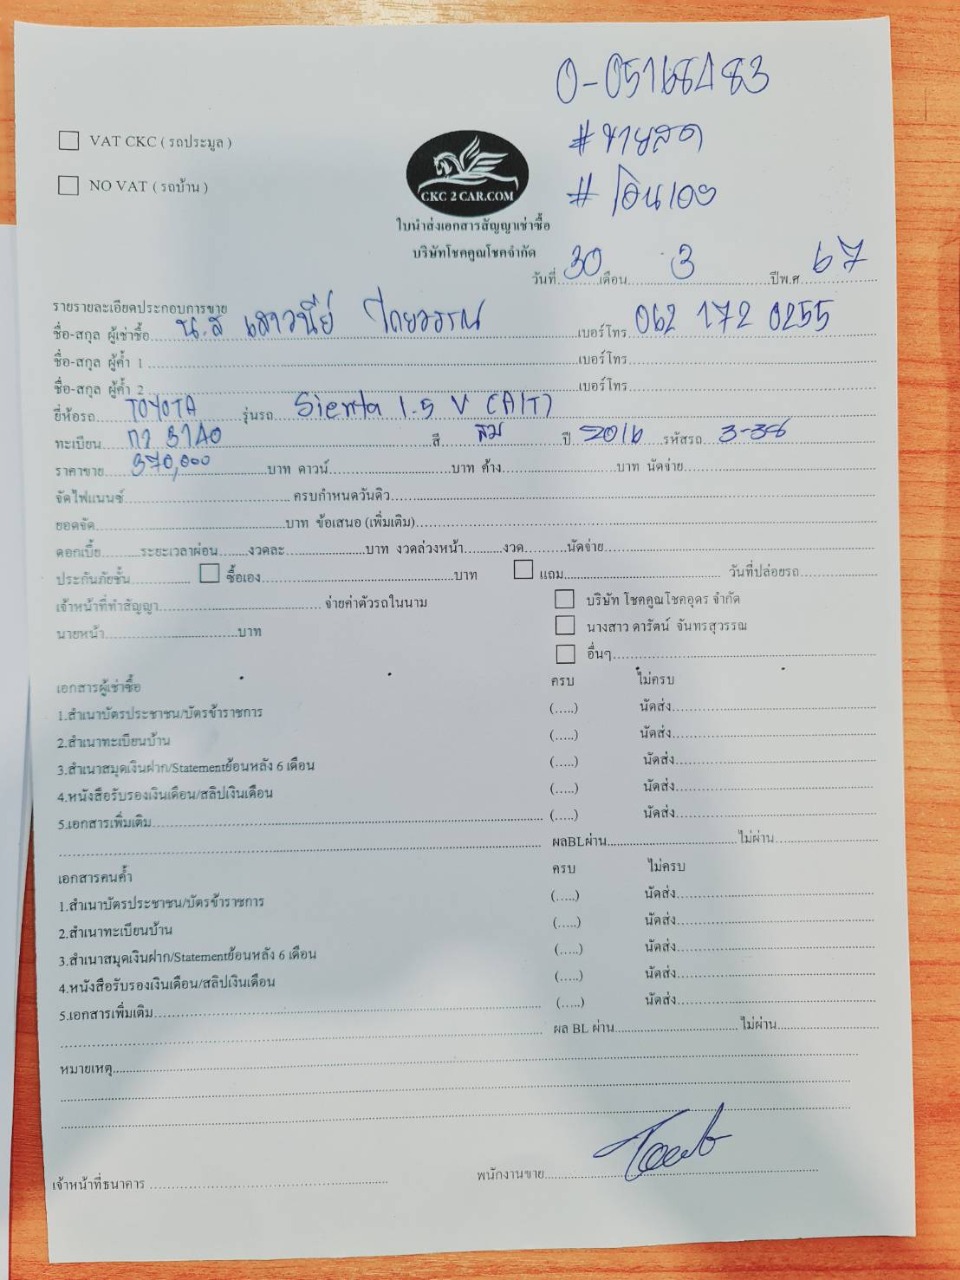 0-05168483
#ขายสด
#โอนเอง
VAT CKC ( รถประมูล )
NO VAT ( รถบ้าน )
CKC 2 CAR.COM
ใบนำส่งเอกสารสัญญาเช่าซื้อ
บริษัทโชคคูณโชคจำกัด
วันที่ 30 เดือน 3 ปีพ.ศ 67
รายรายละเอียดประกอบการขาย
ชื่อ-สกุล ผู้เช่าซื้อ น.ส เสาวนีย์ ไกยวรรณ์ เบอร์โทร 062 172 0255
ชื่อ-สกุล ผู้ค้ำ 1 เบอร์โทร
ชื่อ-สกุล ผู้ค้ำ 2 เบอร์โทร
ยี่ห้อรถ TOYOTA รุ่นรถ Sienta 1.5 V (A/T)
ทะเบียน 3140 สี ส้ม ปี 2016 รหัสรถ 3-38
ราคาขาย 370,000 บาท ดาวน์ บาท ค้าง บาท นัดจ่าย
จัดไฟแนนซ์ ครบกำหนดวันดิว
ยอดจัด บาท ข้อเสนอ (เพิ่มเติม)
ดอกเบี้ย ระยะเวลาผ่อน งวดละ บาท งวดล่วงหน้า งวด นัดจ่าย
ประกันภัยชั้น ซื้อเอง บาท แถม วันที่ปล่อยรถ
เจ้าหน้าที่ทำสัญญา จ่ายค่าตัวรถในนาม บริษัท โชคคูณโชคอุดร จำกัด
นายหน้า บาท นางสาว ดารัตน์ จันทรสุวรรณ
อื่นๆ
เอกสารผู้เช่าซื้อ ครบ ไม่ครบ
1.สำเนาบัตรประชาชน/บัตรข้าราชการ (.....) นัดส่ง
2.สำเนาทะเบียนบ้าน (.....) นัดส่ง
3.สำเนาสมุดเงินฝาก/Statementย้อนหลัง 6 เดือน (.....) นัดส่ง
4.หนังสือรับรองเงินเดือน/สลิปเงินเดือน (.....) นัดส่ง
5.เอกสารเพิ่มเติม (.....) นัดส่ง
ผลBLผ่าน ไม่ผ่าน
เอกสารคนค้ำ ครบ ไม่ครบ
1.สำเนาบัตรประชาชน/บัตรข้าราชการ (.....) นัดส่ง
2.สำเนาทะเบียนบ้าน (.....) นัดส่ง
3.สำเนาสมุดเงินฝาก/Statementย้อนหลัง 6 เดือน (.....) นัดส่ง
4.หนังสือรับรองเงินเดือน/สลิปเงินเดือน (.....) นัดส่ง
5.เอกสารเพิ่มเติม (.....) นัดส่ง
ผล BL ผ่าน ไม่ผ่าน
หมายเหตุ
เจ้าหน้าที่ธนาคาร พนักงานขาย